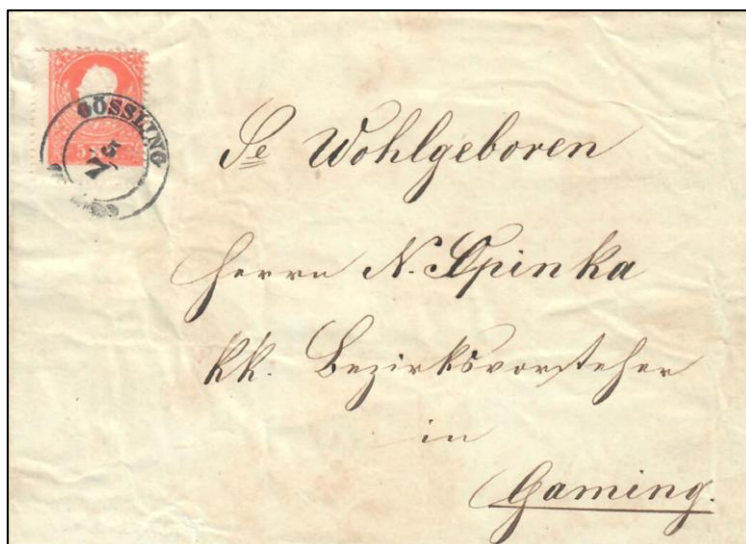 GÖSSLING
5
Se Wohlgeboren
Herrn N. Spinka
kk. Bezirksvorsteher
in
Gaming.